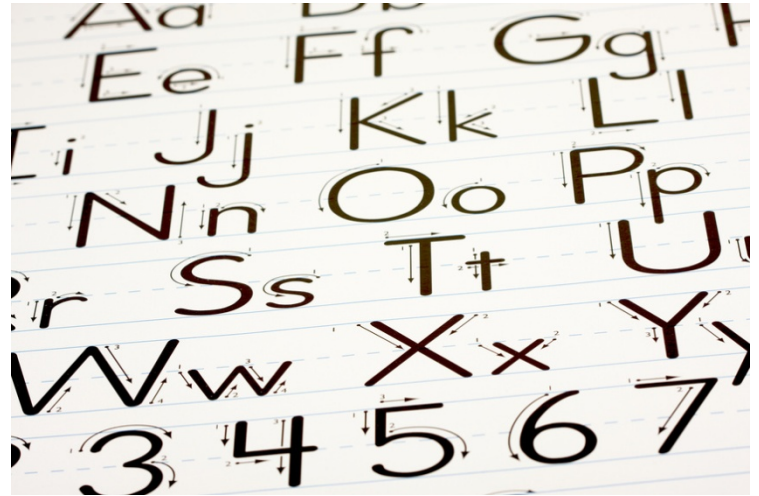 Aa Bb
Ee Ff Gg H
I i Jj Kk Ll
Nn Oo Pp
r Ss Tt U
Ww Xx Yy
3 4 5 6 7